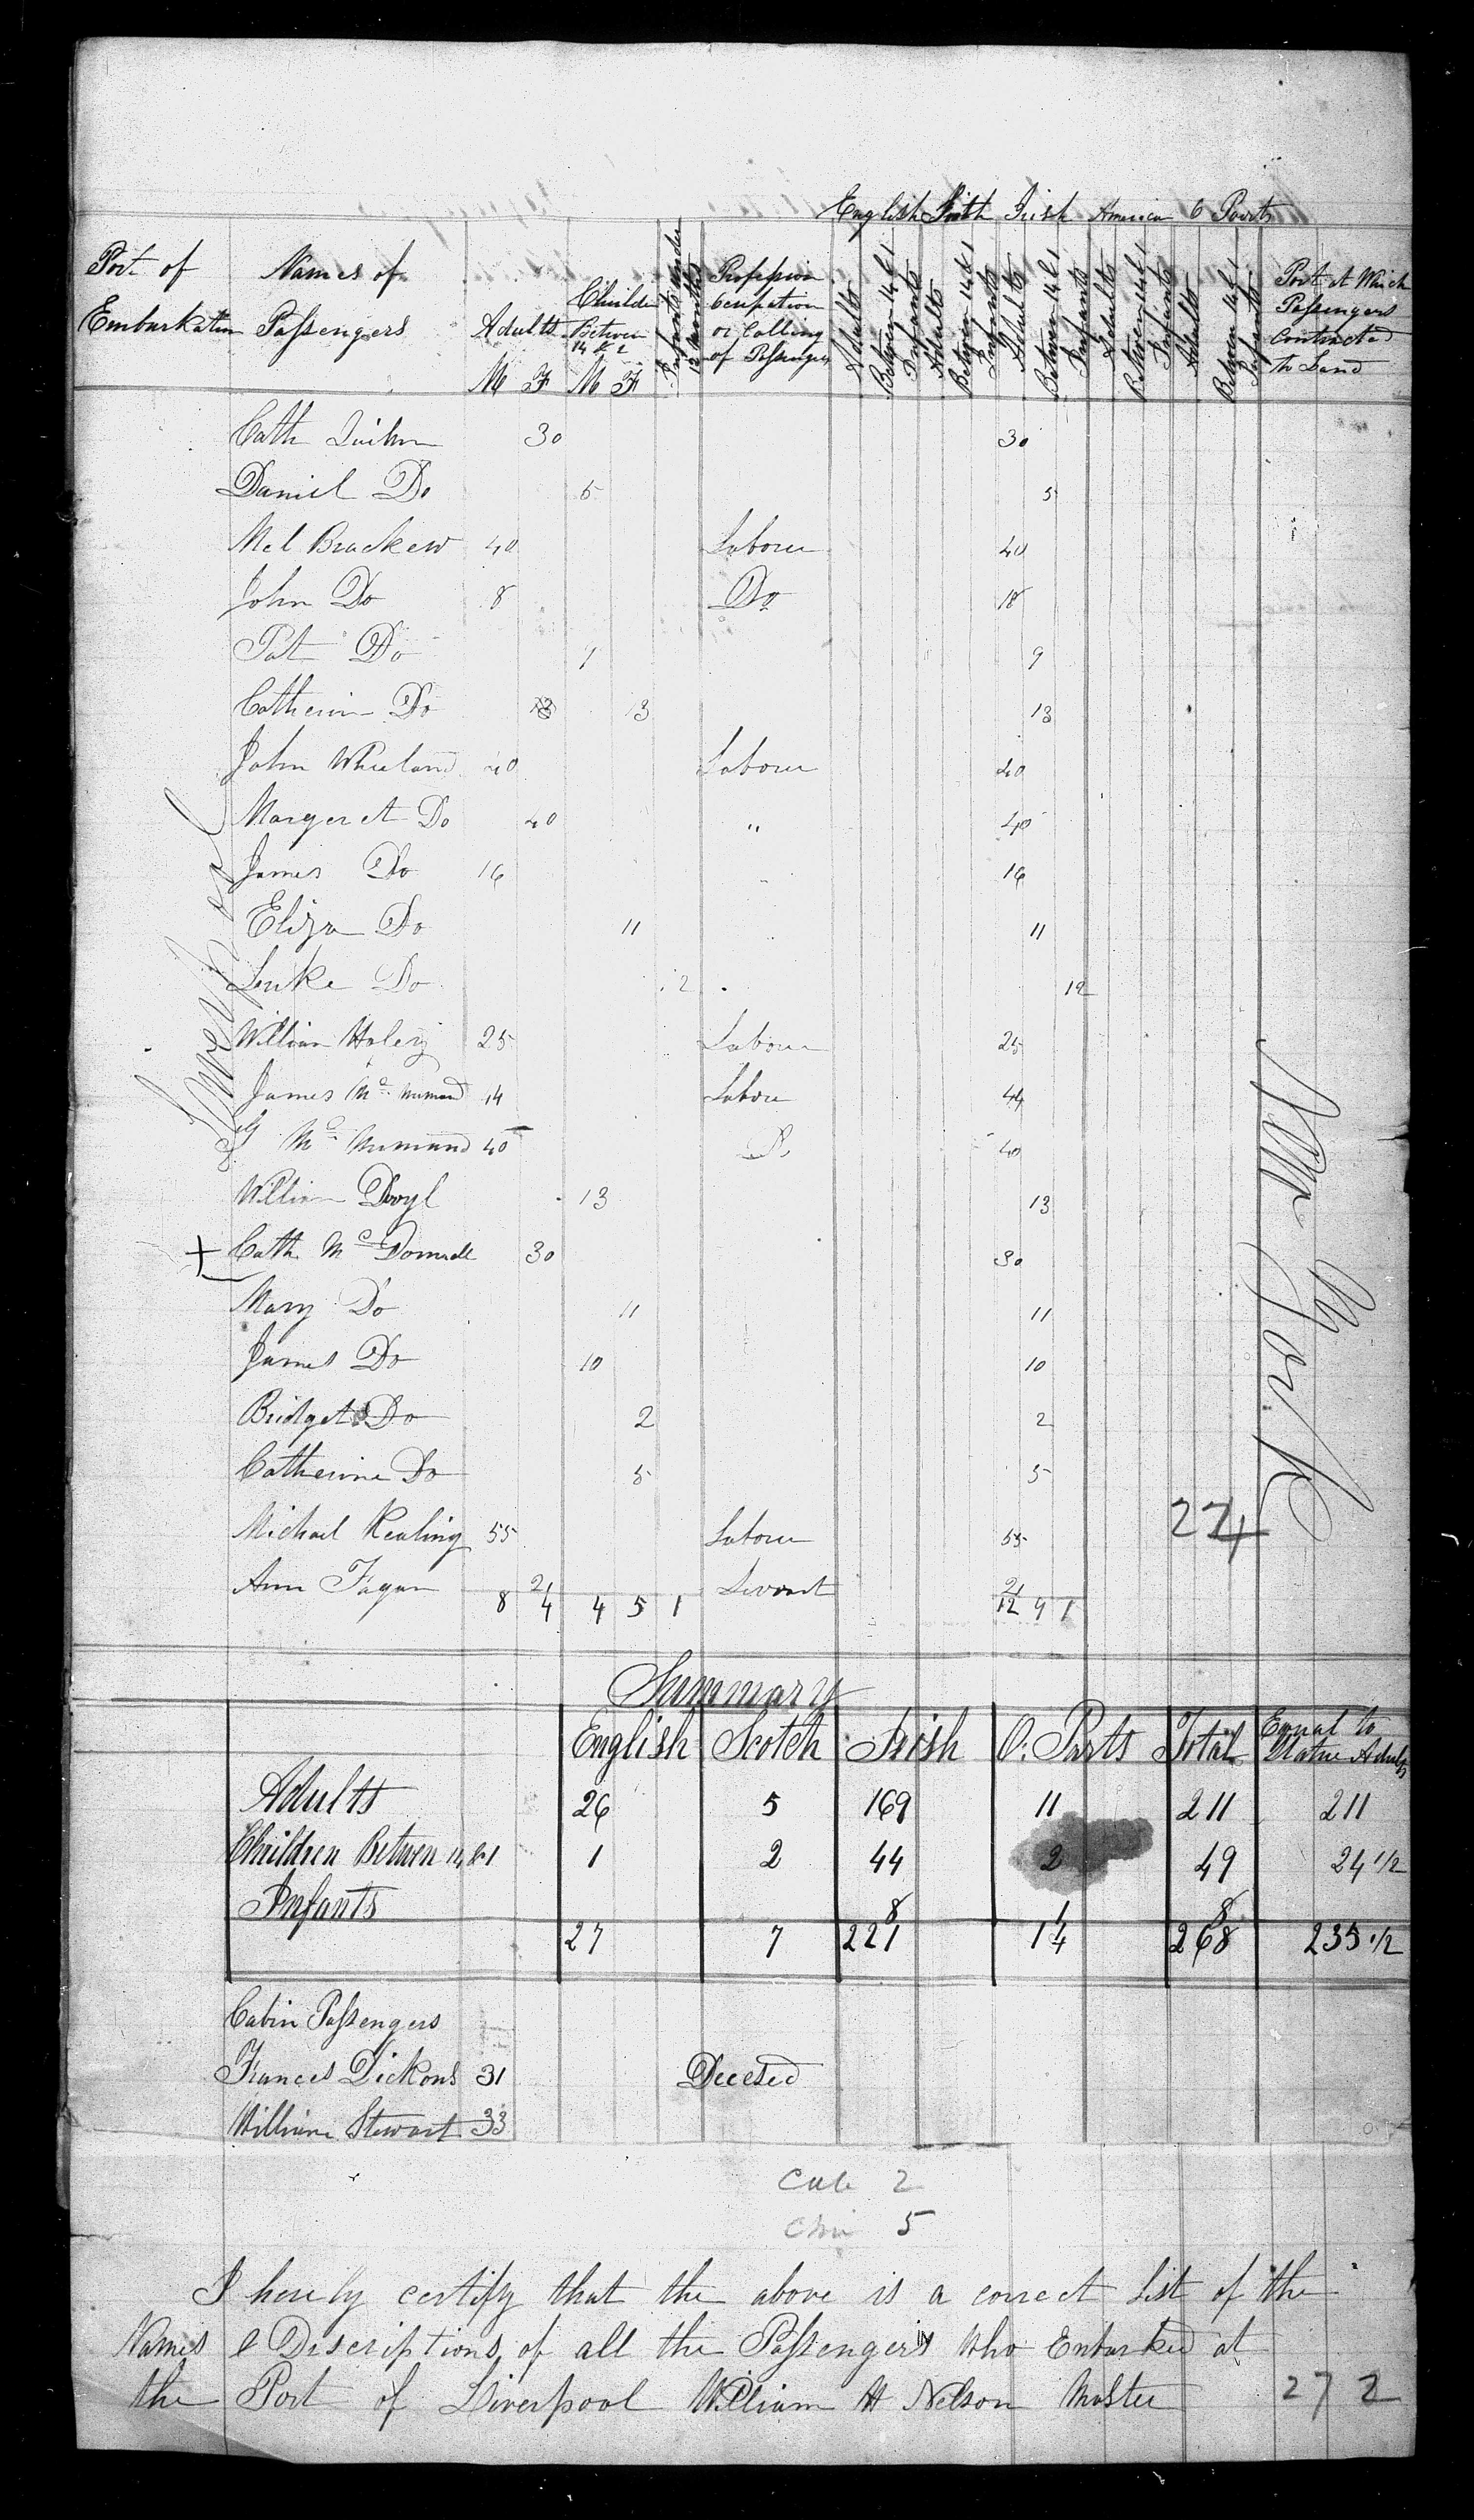 English Irish America O Parts
Port of Embarkation
Names of Passengers
Adults M F
Children Between 14 & 1 M F
Infants under 12 months
Profession Occupation or Calling of Passengers
Adults Between 14 & 1 Infants Adults Between 14 & 1 Infants Adults Between 14 & 1 Infants Adults Between 14 & 1 Infants Adults Between 14 & 1 Infants
Port at Which Passengers Contracted to Land
Liverpool
New York
Cath 30 30
Daniel Do 5 5
Mcl Bracken 40 Labour 40
John Do 8 Do 18
Pat Do 9 9
Catherin Do 13 13
John Wheeland 40 Labour 40
Margeret Do 40 " 40
James Do 16 16
Eliza Do 11 11
Luke Do 2 12
William Haley 25 Labour 25
James Mc 44 Labour 44
Mc 40 40
William Doyl 13 13
+ Cath McDonnell 30 30
Mary Do 11 11
James Do 10 10
Bridget Do 2 2
Catherine Do 5 5
Michael Kealing 55 Labour 55
224
Ann Fagan 21 Servant 21
8 4 4 5 1 12 9 1
Summary
English Scotch Irish O. Parts Total Equal to Statue Adults
Adults 26 5 169 11 211 211
Children Betwen 14 & 1 1 2 44 2 49 24 1/2
Infants 8 1 8
27 7 221 14 268 235 1/2
Cabin Passengers
Frances Dickons 31 Decesed
William Stewart 33
Cab 2
Chi 5
I hereby certify that the above is a correct List of the
Names & Discriptions of all the Passengers Who Enbarked at
the Port of Liverpool William H Nelson Master 272